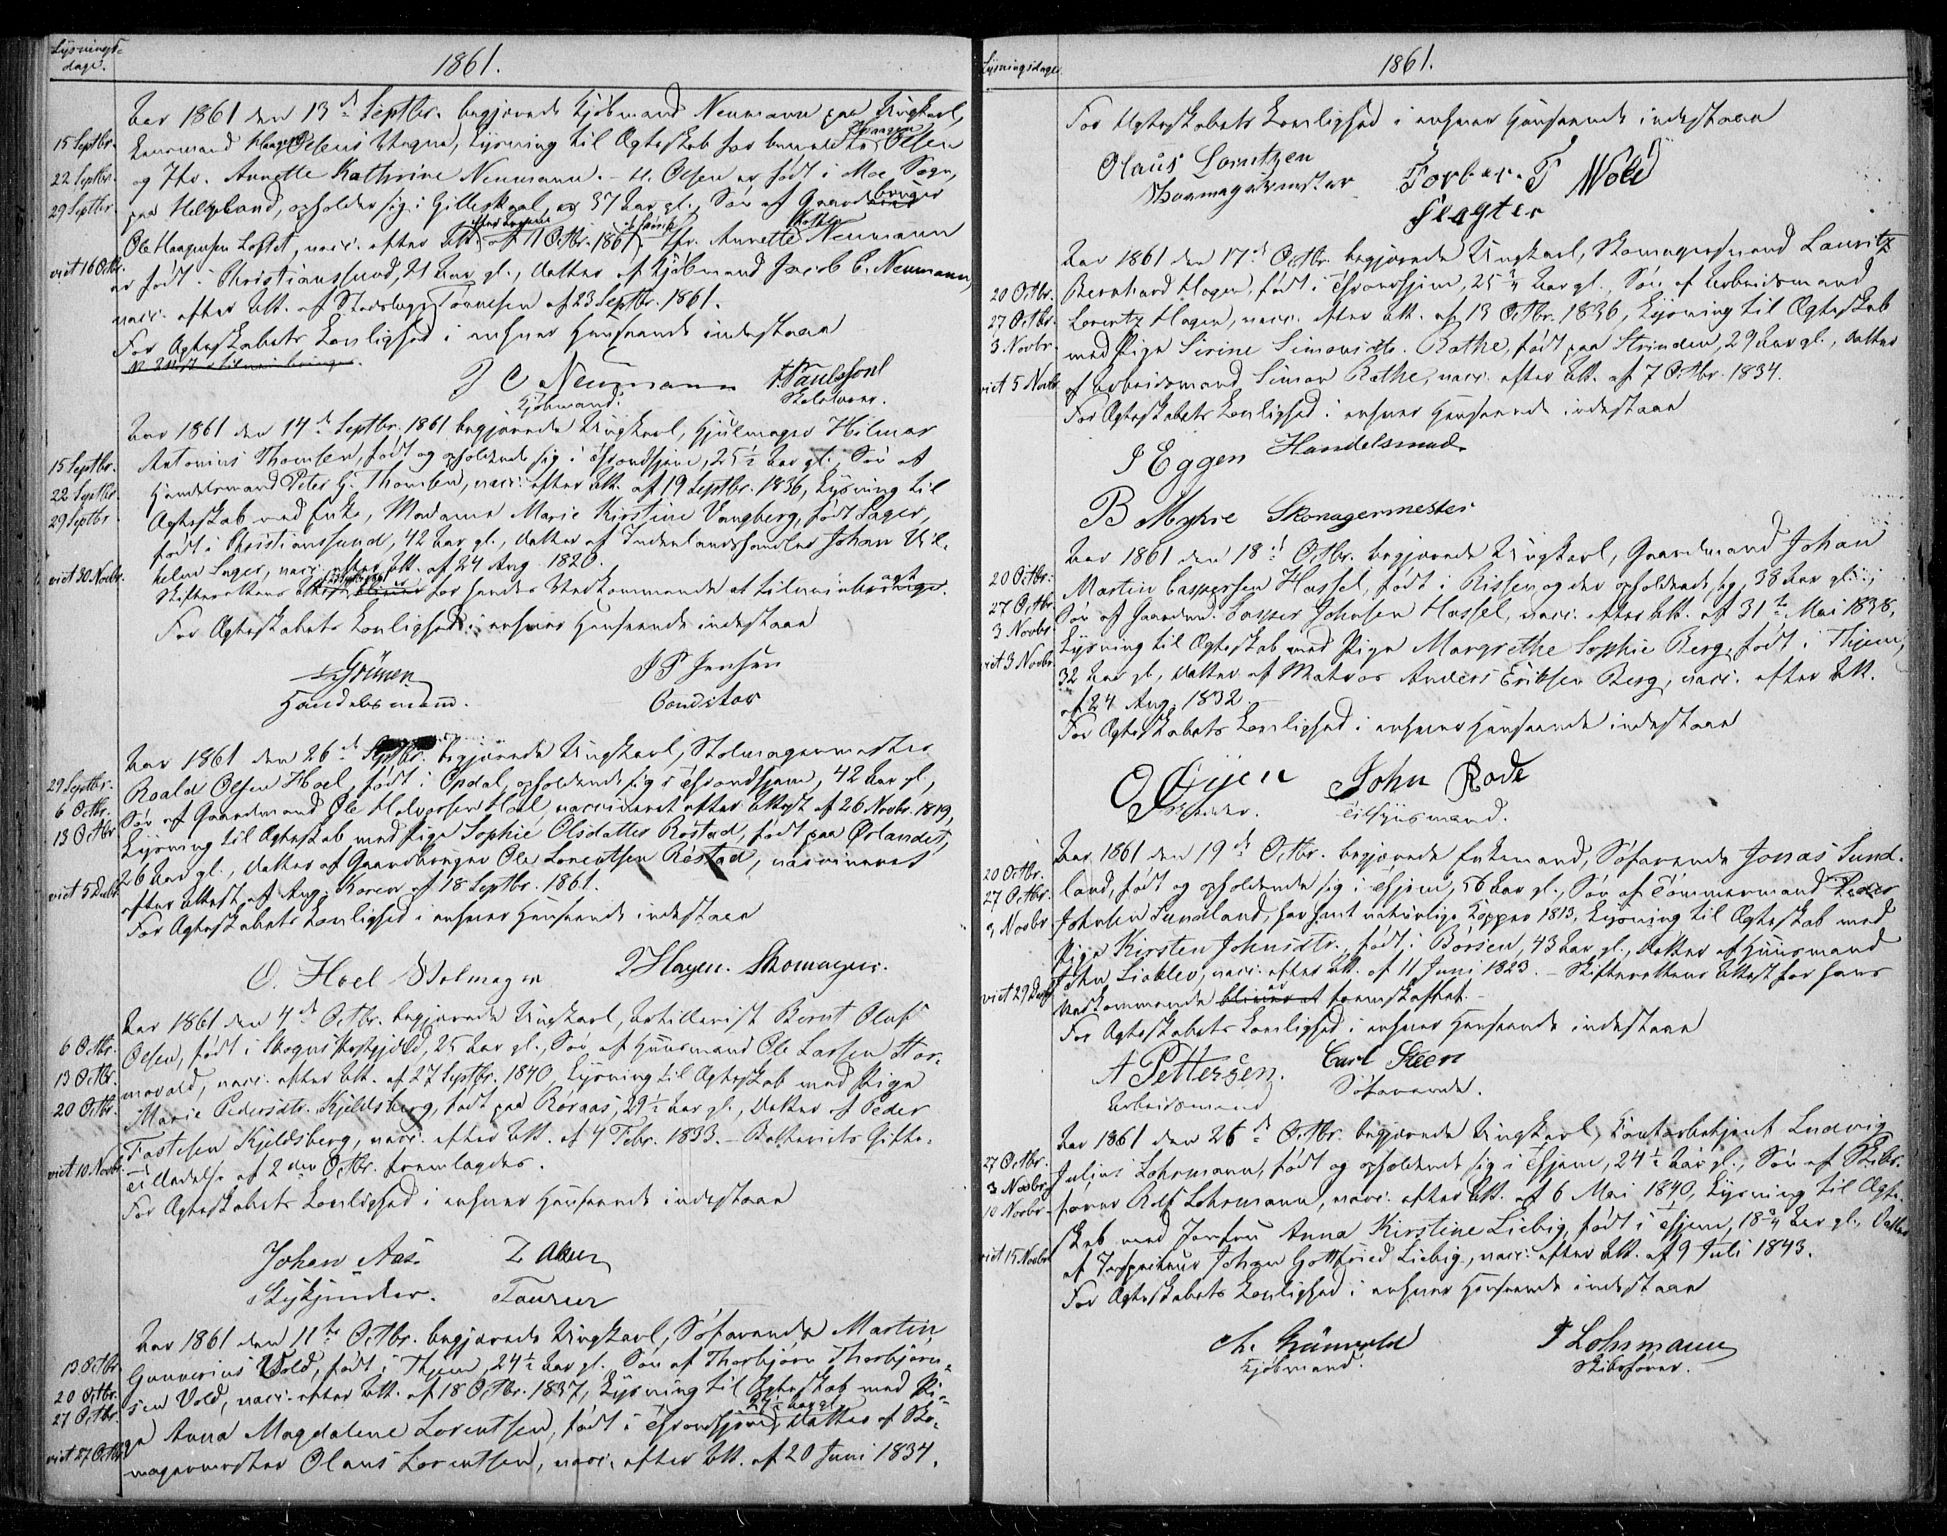 Lysnings-
dage.
1861.
Aar 1861 den 13de Septbr. begjærede Kjøbmand Neumann paa Ungkarl,
15 Septbr.
Lensmand Haagen Olsens Vegne, Lysning til Ægteskab for bemeldte Haagen Olsen
22 Septbr.
og Jfr. Annette Kathrine Neumann. – H. Olsen er født i Moe Sogn,
29 Septbr.
paa Helgeland, opholder sig i Gilleskaal, 37 Aar gl., Søn af Gaardbruger
Ole Haagensen Loftet, vacc. efter Att. af 11 Octbr. 1861. Jfr. Annette Kath. Neumann
viet 16 Octbr.
er født i Christianssund, 21 Aar gl., Datter af Kjøbmand Jacob C. Neumann,
vacc. efter Att. af Stadslæge Tønnesen af 23 Septbr. 1861.
For Ægteskabets Lovlighed i enhver Henseende indestaae
J C Neumann
Kjøbmand.
Aar 1861 den 14de Septbr. 1861 begjærede Ungkarl, Hjulmager Hilmar
15 Septbr.
Antonius Thomsen, født og opholdende sig i Throndhjem, 25½ Aar gl., Søn af
22 Septbr.
Handelsmand Peter H. Thomsen, vacc. efter Att. af 19 Septbr. 1836, Lysning til
29 Septbr.
Ægteskab med Enke, Madame Marie Kirstine Vangberg, født Lager,
født i Christianssund, 42 Aar gl., Datter af Inderlandshandler Johan Vil-
helm Lager, vacc. efter Att. af 24 Aug. 1820.
viet 30 Novbr.
Skifterettens Attest for hendes Vedkommende at tilveiebringe.
For Ægteskabets Lovlighed i enhver Henseende indestaae
Grünen
Handelsmand.
J P Jensen
Conditor
Aar 1861 den 26de Septbr. begjærede Ungkarl, Stolmagermester
29 Septbr.
Roald Olsen Hoel, født i Opdal, opholdende sig i Throndhjem, 42 Aar gl.,
6 Octbr.
Søn af Gaardmand Ole Halvorsen Hoel, vaccineret efter Attest af 26 Novbr. 1819,
13 Octbr.
Lysning til Ægteskab med Pige Sophie Olsdatter Røstad, født paa Ørlandet,
26 Aar gl., Datter af Gaardbruger Ole Lorentsen Røstad, vaccineret
viet 5 Decbr.
efter Attest af Aug. Koren af 18 Septbr. 1861.
For Ægteskabets Lovlighed i enhver Henseende indestaae
O. Hoel Stolmager
L Hagen. Skomager.
Aar 1861 den 4de Octbr. begjærede Ungkarl, Artillerist Bernt Oluf
6 Octbr.
Olsen, født i Skogns Præstegjeld, 25 Aar gl., Søn af Huusmand Ole Larsen Hor-
13 Octbr.
movald, vacc. efter Att. af 27 Septbr. 1840, Lysning til Ægteskab med Pige
20 Octbr.
Marie Pedersdtr. Kjeldsberg, født paa Røraas, 29½ Aar gl., Datter af Peder
Tostesen Kjeldsberg, vacc. efter Att. af 4 Febr. 1833. – Batteriets Gifte-
viet 10 Novbr.
Tilladelse af 2den Octbr. fremlagdes.
For Ægteskabets Lovlighed i enhver Henseende indestaae
Johan Aas.
Aar 1861 den 11te Octbr. begjærede Ungkarl, Søfarende Martin
13 Octbr.
Gunnerius Vold, født i Thjem, 24½ Aar gl. Søn af Thorbjørn Thorbjørn-
20 Octbr.
sen Vold, vacc. efter Att. af 18 Octbr. 1837, Lysning til Ægteskab med Pi-
27 Octbr.
ge Anna Magdalene Lorentsen, født i Throndhjem, Datter af Sko-
viet 27 Octbr.
magermester Olaus Lorentsen, vacc. efter Att. af 20 Juni 1834.
Lysningsdage
1861.
For Ægteskabets Lovlighed i enhver Henseende indestaae
Olaus Lorntzen
Skomagermester
Torber. T Wold
Slagter
Aar 1861 den 17de Octbr. begjærede Ungkarl, Skomagersvend Lauritz
20 Octbr.
Bernhard Hagen, født i Throndhjem, 25 Aar gl., Søn af Arbeidsmand
27 Octbr.
Lorentz Hagen, vacc. efter Att. af 13 Octbr. 1836, Lysning til Ægteskab
3 Novbr.
med Pige Sirine Simonsdtr. Rathe, født paa Strinden, 29 Aar gl., Datter
viet 5 Novbr.
af Arbeidsmand Simon Rathe, vacc. efter Att. af 7 Octbr. 1834.
For Ægteskabets Lovlighed i enhver Henseende indestaae
J Eggen Handelsmd.
B Myhre Skomagermester
Aar 1861 den 18de Octbr. begjærede Ungkarl, Gaardmand Johan
20 Octbr.
Martin Caspersen Hassel, født i Rissen og der opholdende sig, 38 Aar gl.,
27 Octbr.
Søn af Gaardmd. Casper Johnsen Hassel, vacc. efter Att. af 31te Mai 1838,
3 Novbr.
Lysning til Ægteskab med Pige Margrethe Sophie Berg, født i Thjem,
viet 3 Novbr.
32 Aar gl., Datter af Matros Anders Eriksen Berg, vacc. efter Att.
af 24 Aug. 1832.
For Ægteskabets Lovlighed i enhver Henseende indestaae
John Rode
Tilsynsmand.
Aar 1861 den 19de Octbr. begjærede Enkemand, Søfarende Jonas Sund-
20 Octbr.
land, født og opholdende sig i Thjem, 56 Aar gl., Søn af Tømmermand Peder
27 Octbr.
Johnsen Sundland, har havt naturlige Kopper 1813, Lysning til Ægteskab med
3 Novbr.
Pige Kirsten Johnsdtr., født i Børsen, 43 Aar gl., Datter af Huusmand
John Lioklev, vacc. efter Att. af 11 Juni 1823. – Skifterettens Attest for hans
viet 29 Decbr.
Vedkommende er fremskaffet. –
For Ægteskabets Lovlighed i enhver Henseende indestaae
A Pettersen.
Arbeidsmand
Carl Steen
Søfarende.
Aar 1861 den 26de Octbr. begjærede Ungkarl, Contorbetjent Ludvig
27 Octbr.
Julius Lohrmann, født og opholdende sig i Thjem, 24½ Aar gl., Søn af Skibs-
3 Novbr.
fører Rolf Lohrmann, vacc. efter Att. af 6 Mai 1840, Lysning til Ægte-
10 Novbr.
skab med Jomfru Anna Kirstine Liebig, født i Thjem, 18¾ Aar gl., Datter
viet 15 Novbr.
af Inspecteur Johan Gottfried Liebig, vacc. efter Att. af 9 Juli 1843.
For Ægteskabets Lovlighed i enhver Henseende indestaae
Grünvald
Kjøbmand.
Lohrmann
Skibsfører.